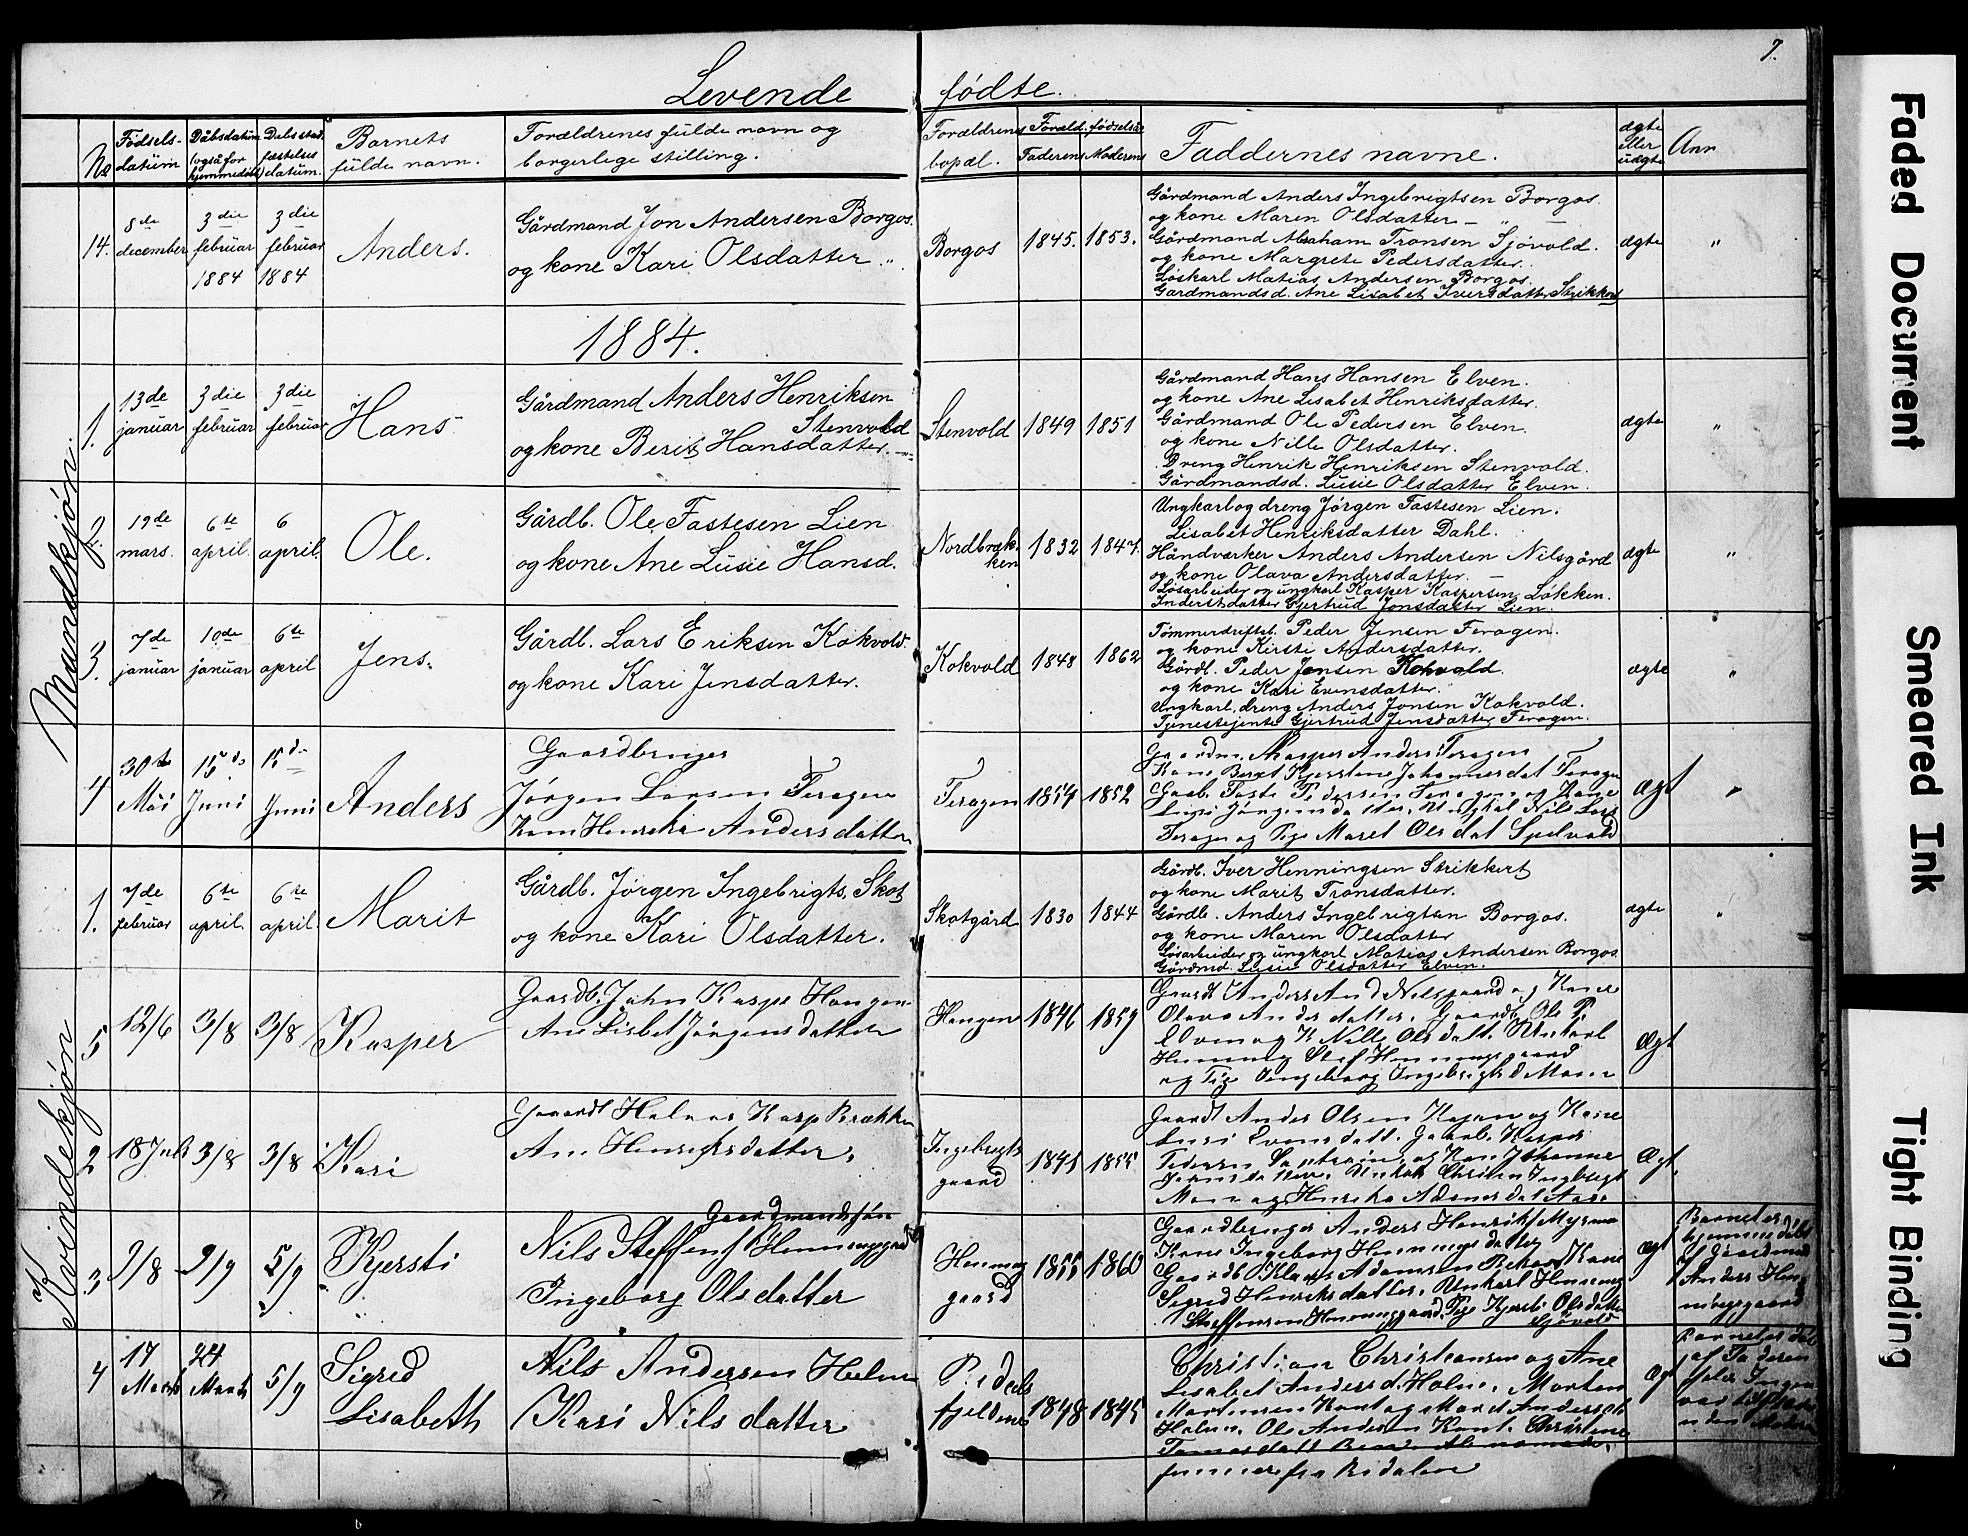 7.
Levende fødte.
No
Fødsels-
datum
Dåbsdatum
(også for
hjemmedøbt)
Dåbsstad-
fæstelses
datum.
Barnets
fulde navn.
Forældrenes fulde navn og
borgerlige stilling.
Forældrenes
bopæl.
Foræld. fødselsår
Faderens Moderens
Faddernes navne.
ægte
eller
uægte
Anm
14.
8de
december
3die
februar
1884
3die
februar
1884
Anders.
Gårdmand Jon Andersen Borgos.
og kone Kari Olsdatter "
Borgos
1845.
1853.
Gårdmand Anders Ingebrigtsen Borgos.
og kone Maren Olsdatter — " —
Gårdmand Abraham Tronsen Sjøvold.
og kone Margrete Pedersdatter.
Løskarl Matias Andersen Borgos.
Gårdmandsd. Ane Lisabet Iversdatter Strikkert
ægte
"
1884.
Mandkjøn.
1.
13de
januar
3die
februar
3die
februar
Hans
Gårdmand Anders Henriksen
Stenvold
og kone Berit Hansdatter. —"—
Stenvold
1849
1851
Gårdmand Hans Hansen Elven.
og kone Ane Lisabet Henriksdatter.
Gårdmand Ole Pedersen Elven.
og kone Nille Olsdatter.
Dreng Henrik Henriksen Stenvold.
Gårdmandsd. Lusie Olsdatter Elven.
ægte
"
2.
19de
mars.
6te
april.
6
april.
Ole.
Gårdb. Ole Fastesen Lien
og kone Ane Lusie Hansd.
Nordbræk-
ken
1832
1847.
Ungkarl og dreng Jørgen Fastesen Lien.
Lisabet Henriksdatter Dahl.
Håndværker Anders Andersen Nilsgård
og kone Olava Andersdatter. —
Løsarbeider og ungkarl Kasper Kaspersen Løkken.
Inderstdatter Gjertrud Jonsdatter Lien.
ægte
"
3.
7de
januar
10de
januar
6te
april
Jens.
Gårdb. Lars Eriksen Kokvold
og kone Kari Jensdatter.
Kokvold
1848
1862
Tømmerdriftsb. Peder Jensen Feragen.
og kone Kirsti Andersdatter.
Gårdb. Peder Jonsen Kokvold.
og kone Kari Evensdatter.
Ungkarl, dreng Anders Jonsen Kokvold.
Tjenestejente Gjertrud Jensdatter Feragen.
ægte
"
4
30te
Mai
15de
Juni
15de
Juni
Anders
Gaardbruger
Jørgen Larsen Feragen
Kone Henrika Andersdatter
Feragen
1854
1852
Gaardm. Kasper Anders Feragen
Kone Beret Kjerstine Johannesdat Feragen
Gaab. Faste Pedersen Feragen og Kone
Lusi Jørgensdatter. Ungkal Nils Lars
Feragen og Pige Maret Olsdat
Ægt
"
Kvindekjøn
1.
7de
februar
6te
april.
6te
april.
Marit
Gårdb. Jørgen Ingebrigts. Skot
og kone Kari Olsdatter.
Skotgård
1830
1844
Gårdb. Iver Henningsen Strikkert
og kone Marit Tronsdatter.
Gårdb. Anders Ingebrigtsen Borgos.
og kone Maren Olsdatter
Løsarbeider og ungkarl Matias Andersen Borgos.
Gårdmd. Lusie Olsdatter Elven.
ægte
"
5
12/6
3/8
3/8
Kasper
Gaardb. John Kaspe Hangen
Ane Lisbet Jørgensdatter
Hangen
1846
1859
Gaardb Anders And Nilsgaard og Kone
Olava Andersdatter. Gaardb Ole P.
Elven og K Nille Olsdatt. Unkarl
Henning Stef Henningsgaard
og Pige Ingeborg Ingebrigtsd Moen
Ægt
2
18 Juli
3/8
3/8
Kari
Gaardb Halvor Kasp Brækken
Ane Henriksdatter.
Ingebregts
gaard
1845
1855
Gaardb Anders Olsen Hagen og Kone
Lusi Evensdatt. Gaardb. Kasper
Pedersen og Kone Johanne
Unkarl Christen Ingbregt
Moen og Henrika Adamsdat Aas.
Ægt.
3
2/8
2/9
5/9
Kjersti
Gaardmandssøn
Nils Steffens Henningsgaard
Ingeborg Olsdatter
Henning
gaard
1855
1860
Gaardbruger Anders Henriks Myrmo
Kone Ingeborg Henningsdatter
Gaardb Klaus Adamsen Kone
Sigrid Henriksdatter. Unkarl Henning
Steffensen Henningsgaard. Pige Kjersti Olsdatter
Sjøvold
Ægt
Barnet er
hjemmedøbt
af Gaardmand
Anders Hen
ningsgaard
4
17
Marts
24
Marts
5/9
Sigrid
Lisabeth
Nils Andersen Holm
Kari Nilsdatter
fjeldene
1848
1845
Christian Christiansen og Ane
Lisabet Andersd. Holm. Morten
Mortensen Kant og Maret Andersdt
Holm. Ole Andersen Kant. Christine
Tomasdatt
Æg
Barnet er døbt
af Faderen